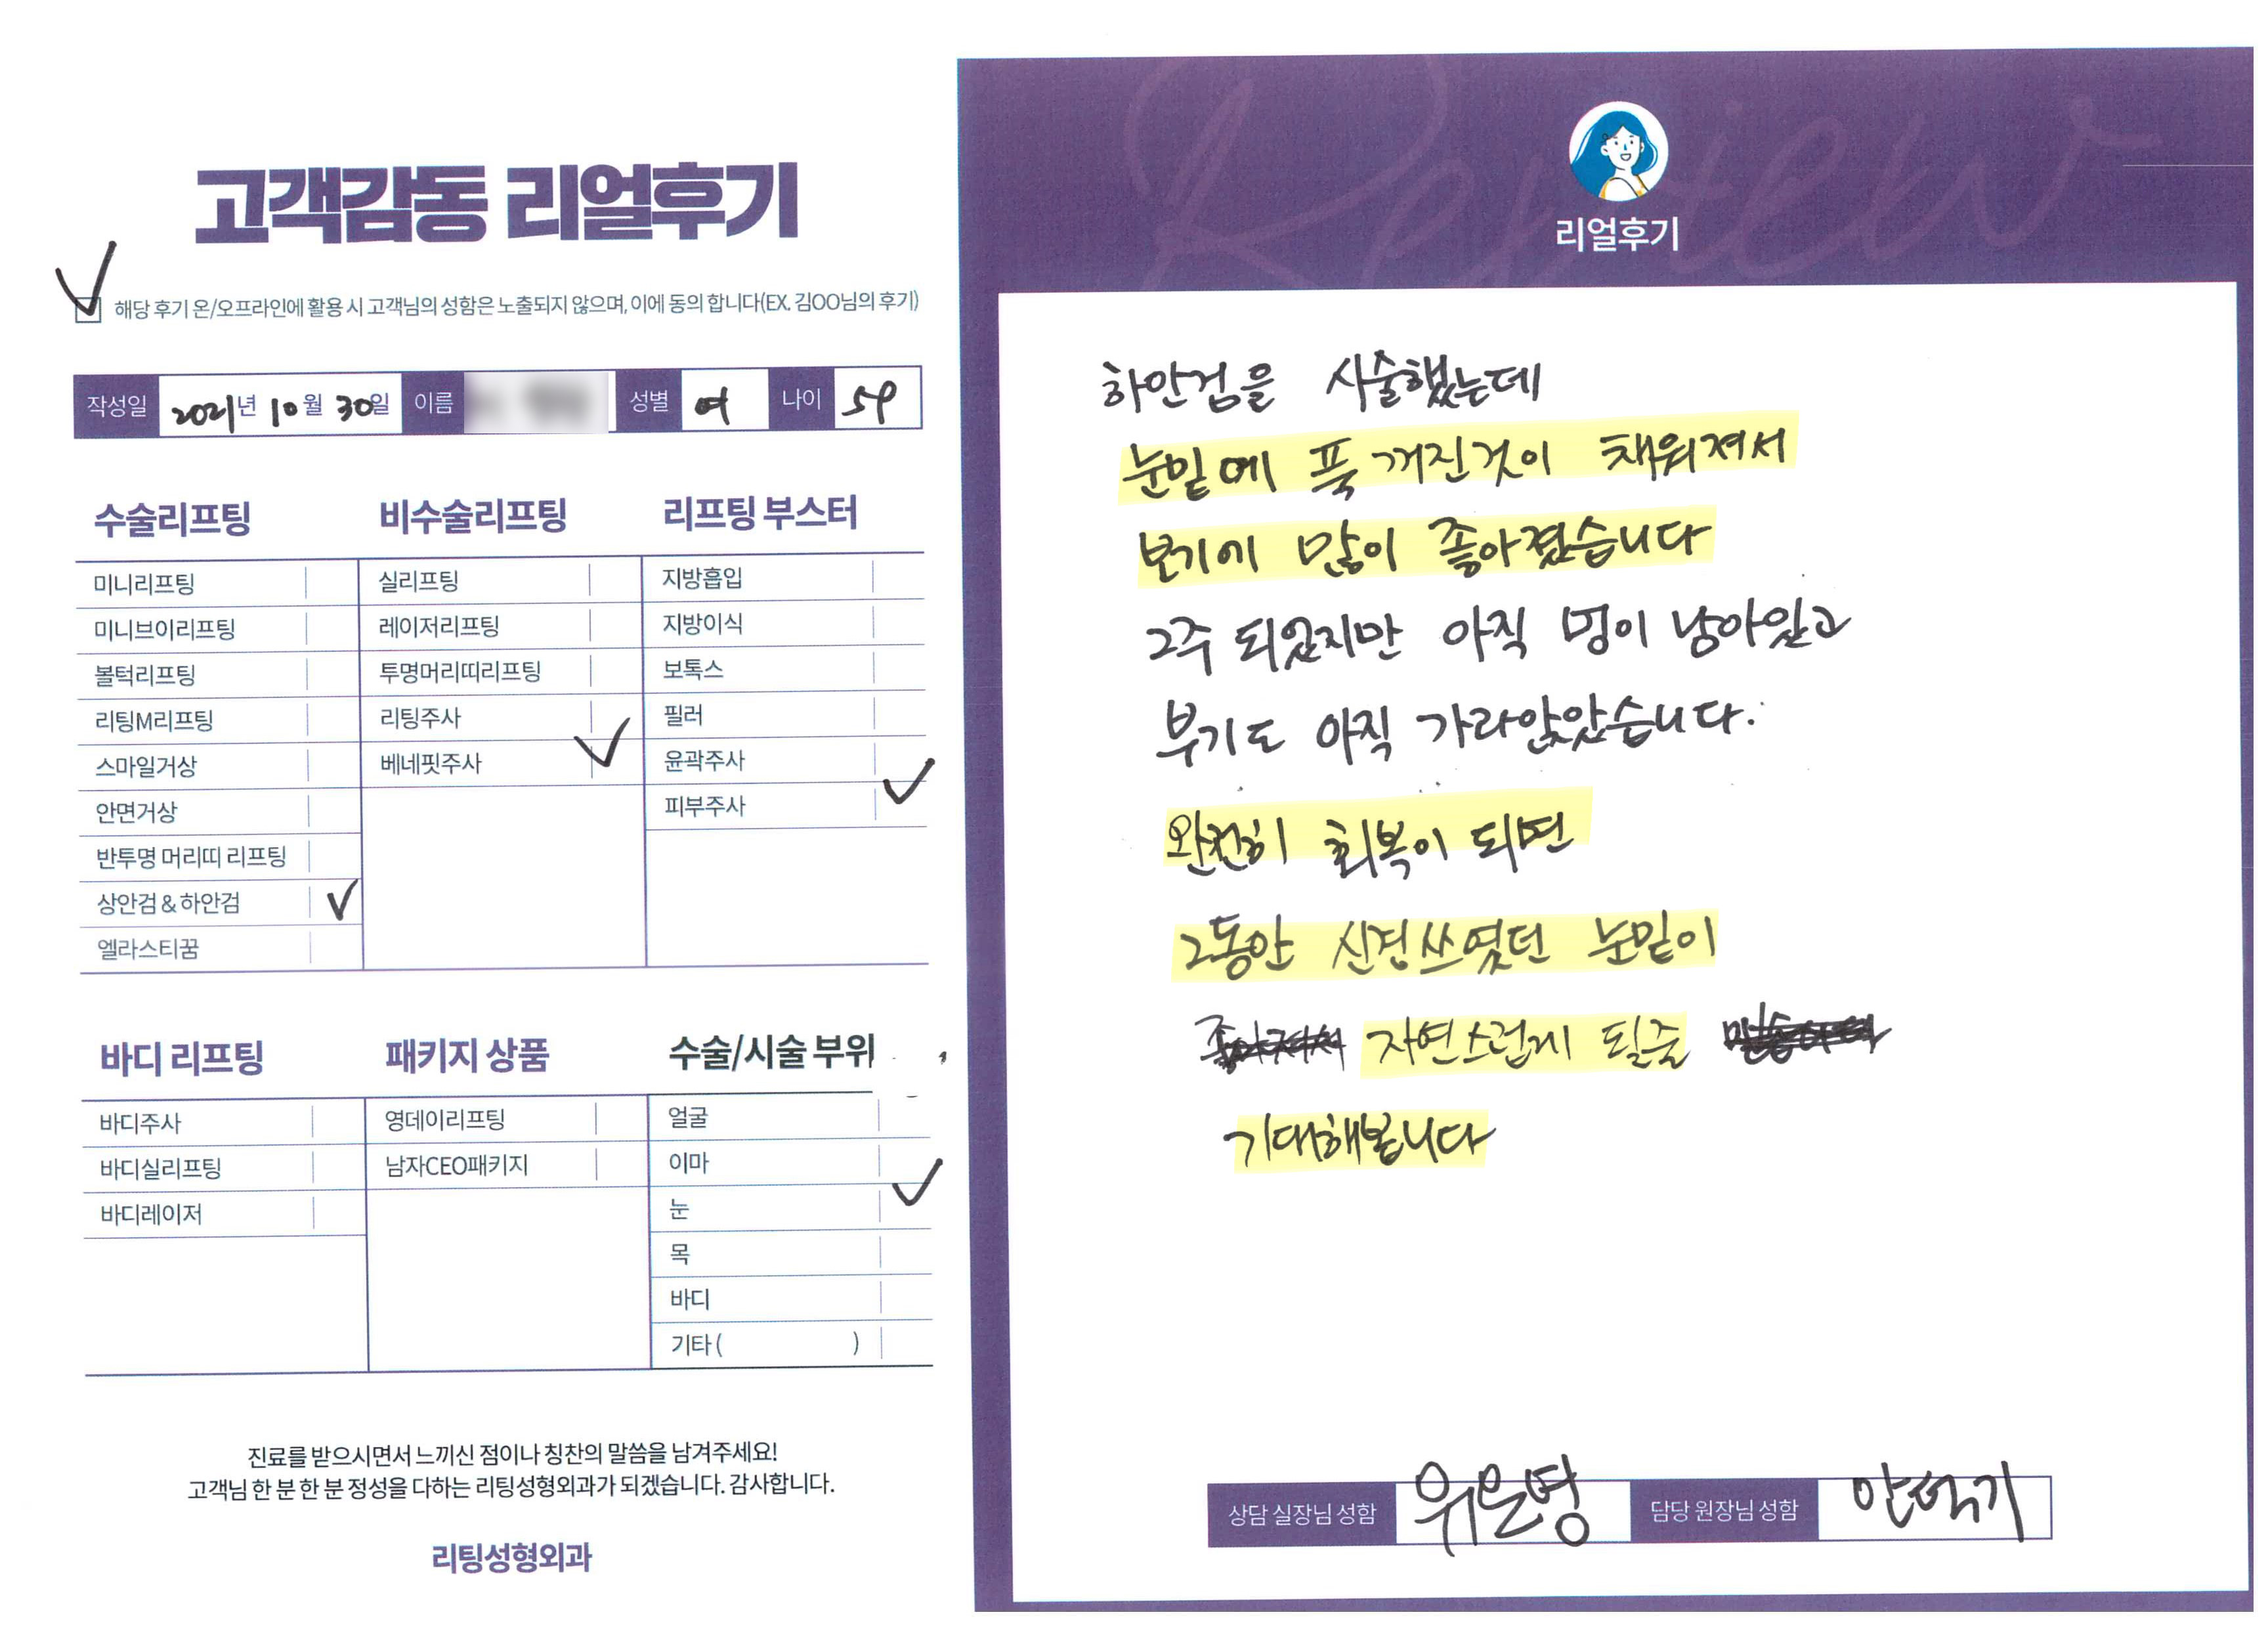 고객감동 리얼후기
해당 후기 온/오프라인에 활용 시 고객님의 성함은 노출되지 않으며, 이에 동의 합니다(EX. 김OO님의 후기)
작성일 2021년 10월 30일 이름 성별 여 나이 59
수술리프팅
미니리프팅
미니브이리프팅
볼턱리프팅
리팅M리프팅
스마일거상
안면거상
반투명 머리띠 리프팅
상안검 & 하안검
엘라스티꿈
비수술리프팅
실리프팅
레이저리프팅
투명머리띠리프팅
리팅주사
베네핏주사
리프팅 부스터
지방흡입
지방이식
보톡스
필러
윤곽주사
피부주사
바디 리프팅
바디주사
바디실리프팅
바디레이저
패키지 상품
영데이리프팅
남자CEO패키지
수술/시술 부위
얼굴
이마
눈
목
바디
기타 ( )
진료를 받으시면서 느끼신 점이나 칭찬의 말씀을 남겨주세요!
고객님 한 분 한 분 정성을 다하는 리팅성형외과가 되겠습니다. 감사합니다.
리팅성형외과
Review
리얼후기
하안검을 시술했는데
눈밑에 푹 꺼진것이 채워져서
보기에 많이 좋아졌습니다
2주 되었지만 아직 멍이 남아있고
부기도 아직 가라앉았습니다.
완전히 회복이 되면
그동안 신경쓰였던 눈밑이
자연스럽게 될줄
기대해봅니다
상담 실장님 성함 위은영 담당 원장님 성함